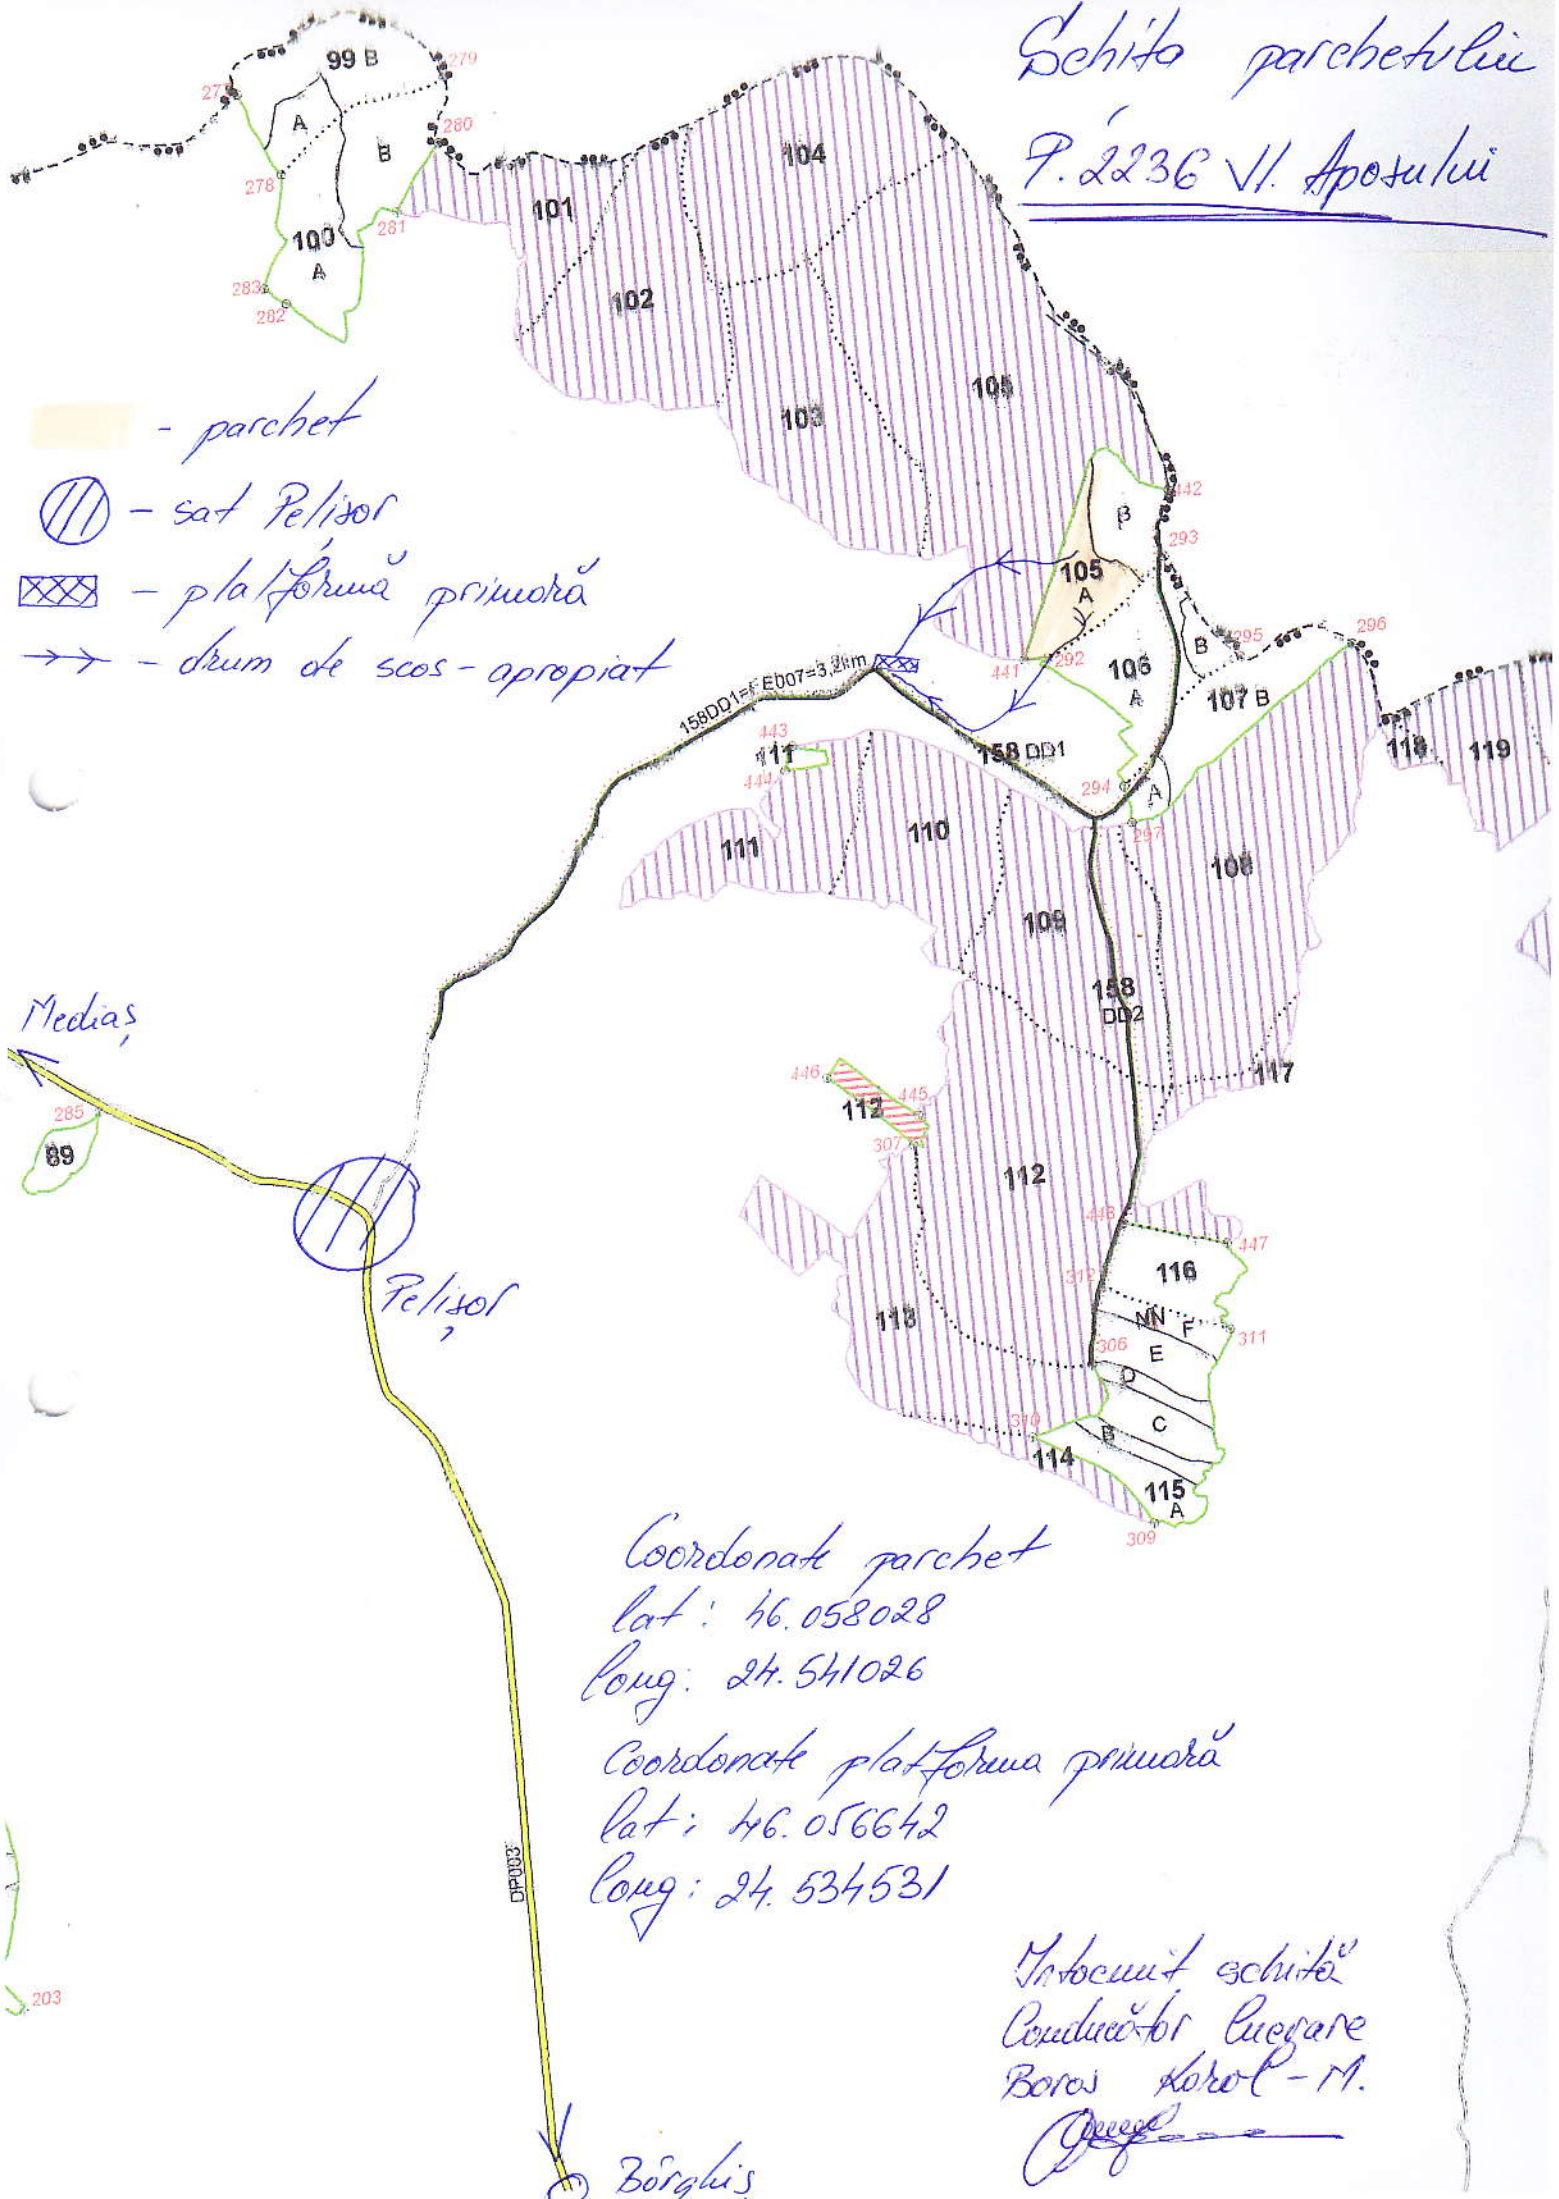 Schița parchetului
P. 2236 Vl. Aposului
99 B
279
277
A
280
B
278
104
101
281
100
A
283
282
102
105
103
- parchet
- sat Pelișor
- platformă primară
- drum de scos-apropiat
442
B
293
105
A
295
296
B
441
292
106
A
107 B
158DD1=FE007=3,2km
443
111
444
158 DD1
118
119
294
A
297
110
111
108
109
158
DD2
Mediaș
117
446
445
112
285
89
307
112
448
447
Pelișor
312
116
113
NN
F
311
306
E
D
C
310
B
114
115
A
309
Coordonate parchet
lat: 46.058028
long: 24.541026
Coordonate platforma primară
lat: 46.056642
long: 24.534531
DP003
203
Intocmit schită
Conducător lucrare
Boros Karol-M.
Bârghiș